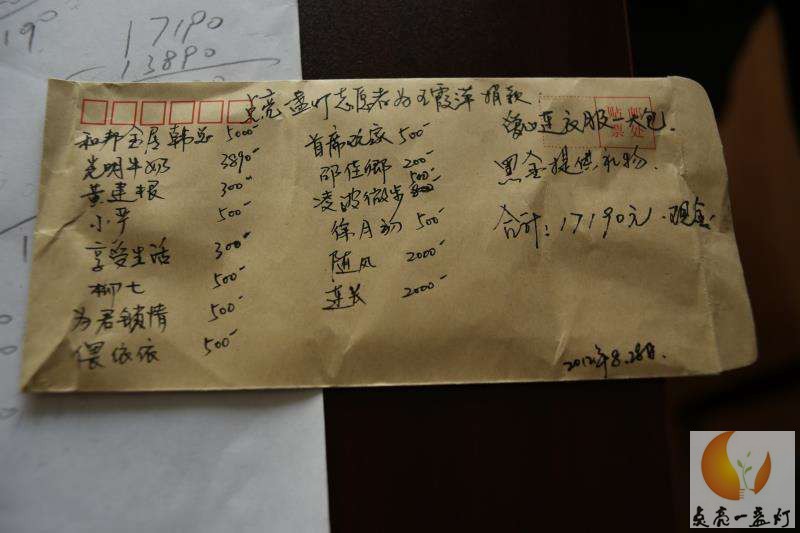 17190
13890
点亮一盏灯志愿者为王霞萍捐款
和邦金属韩总 5000
光明牛奶 3890
黄建根 300
小平 500
享受生活 300
柳七 500
为君锁情 500
偎依依 500
首席收家 500
邵佳卿 200
凌波微步 500
徐月初 500
随风 2000
连长 2000
连衣服一大包.
黑金提供礼物.
合计:17190元.现金.
贴票
邮处
2012年8.28日.
点亮一盏灯